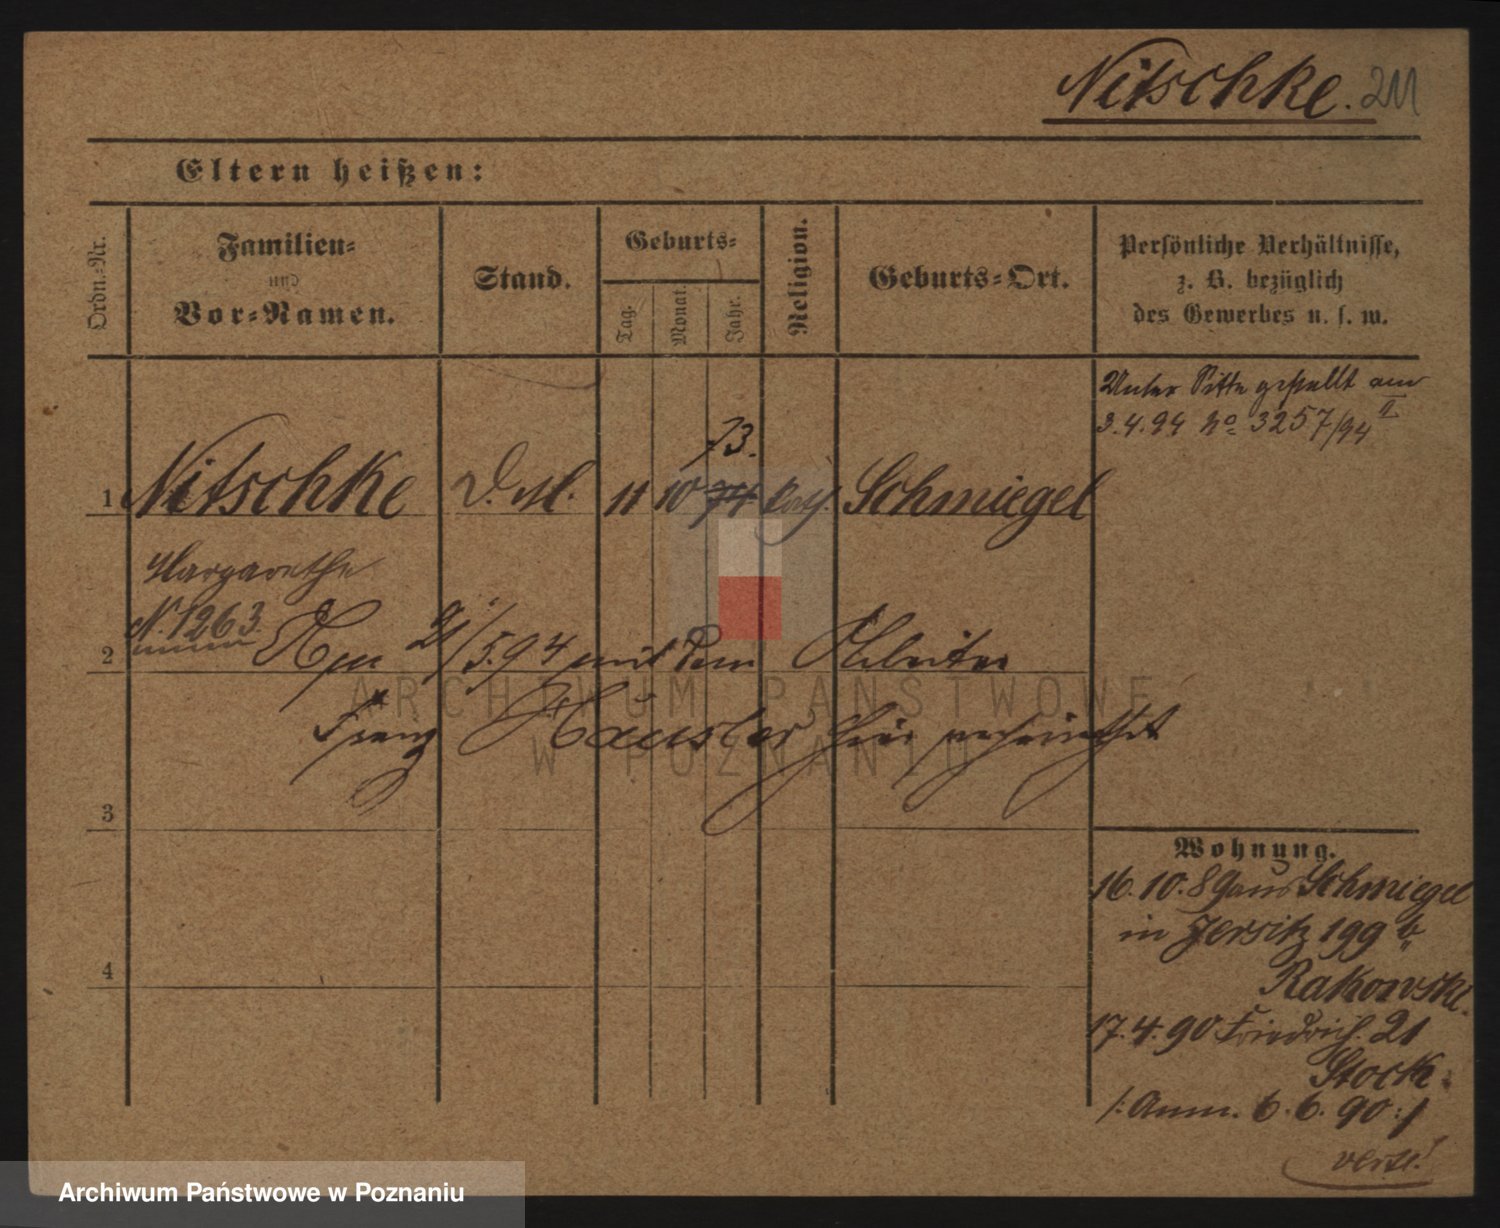 Nitschke. 211
Eltern heißen:
Ordn.-Nr.
Familien-
und
Vor-Namen.
Stand.
Geburts-
Tag.
Monat.
Jahr.
Religion.
Geburts-Ort.
Persönliche Verhältnisse,
z. B. bezüglich
des Gewerbes u. s. w.
Unter Sitte gestellt am
3.4.94 No 3257/94 II
73.
1 Nitschke D. M. 11 10 74 Schmiegel
Margarethe
N. 1263.
2 5.94 mit dem Arbeiter
Franz Häusler hier verheirathet
3
4
Wohnung.
16.10.89 aus Schmiegel
in Jersitz 199 b,
Rakowski.
17.4.90 Friedrich. 21
Stock.
/: Anm. 6.6.90 :/
verte!
ARCHIWUM PAŃSTWOWE
W POZNANIU
Archiwum Państwowe w Poznaniu